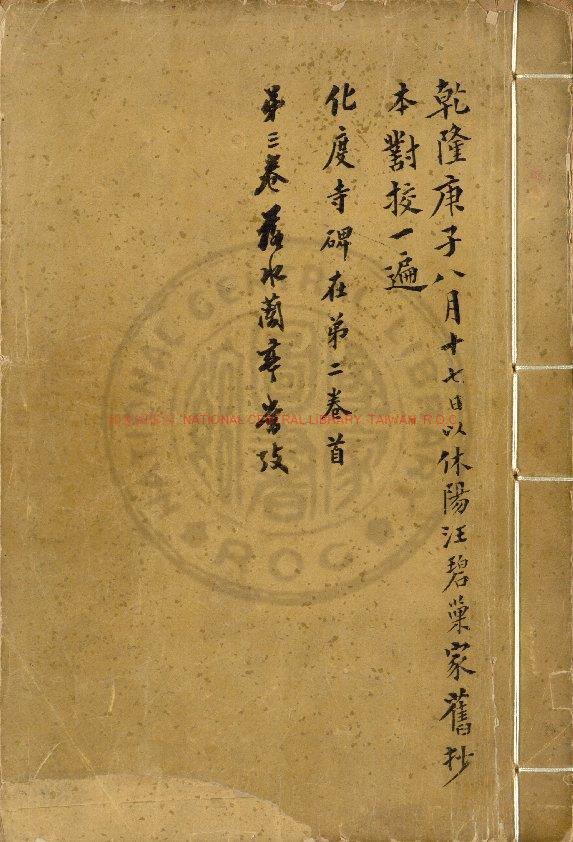 乾隆庚子八月十七日以休陽汪碧巢家舊抄
本對挍一遍
化度寺碑在第二卷首
第三卷落水蘭亭當攷
NATIONAL CENTRAL LIBRARY, TAIWAN (R.O.C)
NATIONAL CENTRAL LIBRARY
ROC